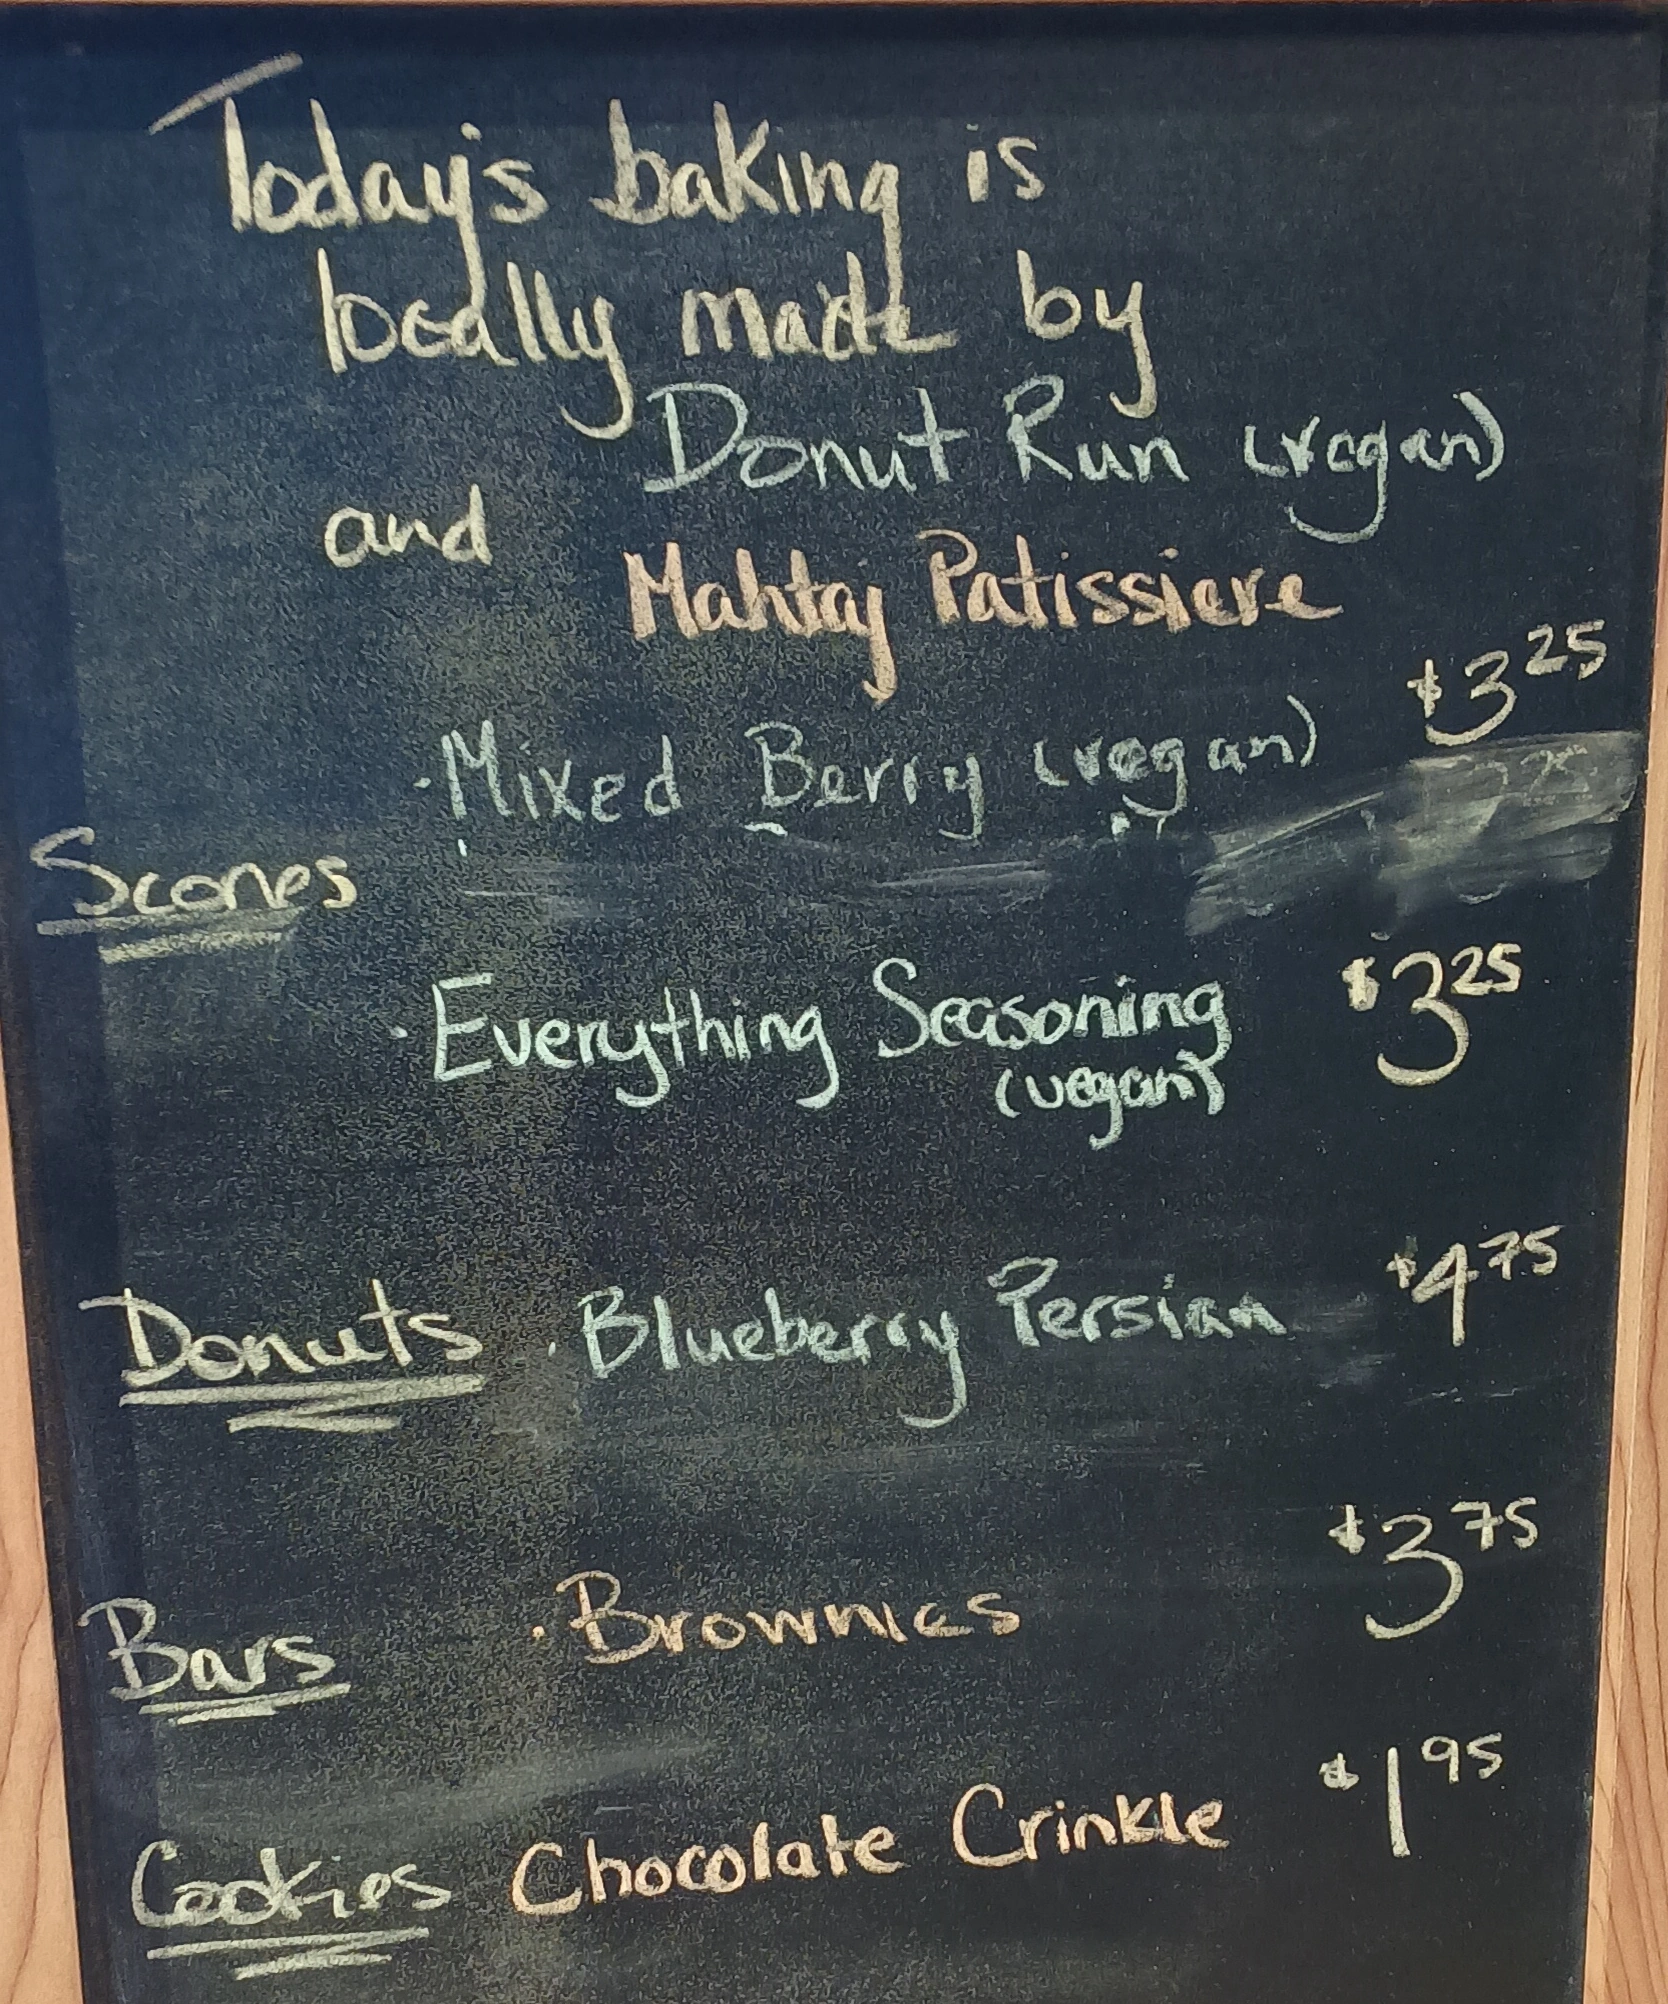 Today's baking is
locally made by
Donut Run (vegan)
and
Mahtay Patissiere
· Mixed Berry (vegan) $3 25
Scones
· Everything Seasoning $3 25
(vegan)
Donuts · Blueberry Persian $4 75
Bars · Brownies $3 75
Cookies Chocolate Crinkle $1 95